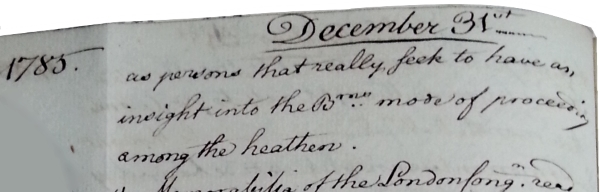 December 31st
1785. as persons that really seek to have an
insight into the Brns mode of proceeding
among the heathen.
Memorabilia of the London Cong.n read